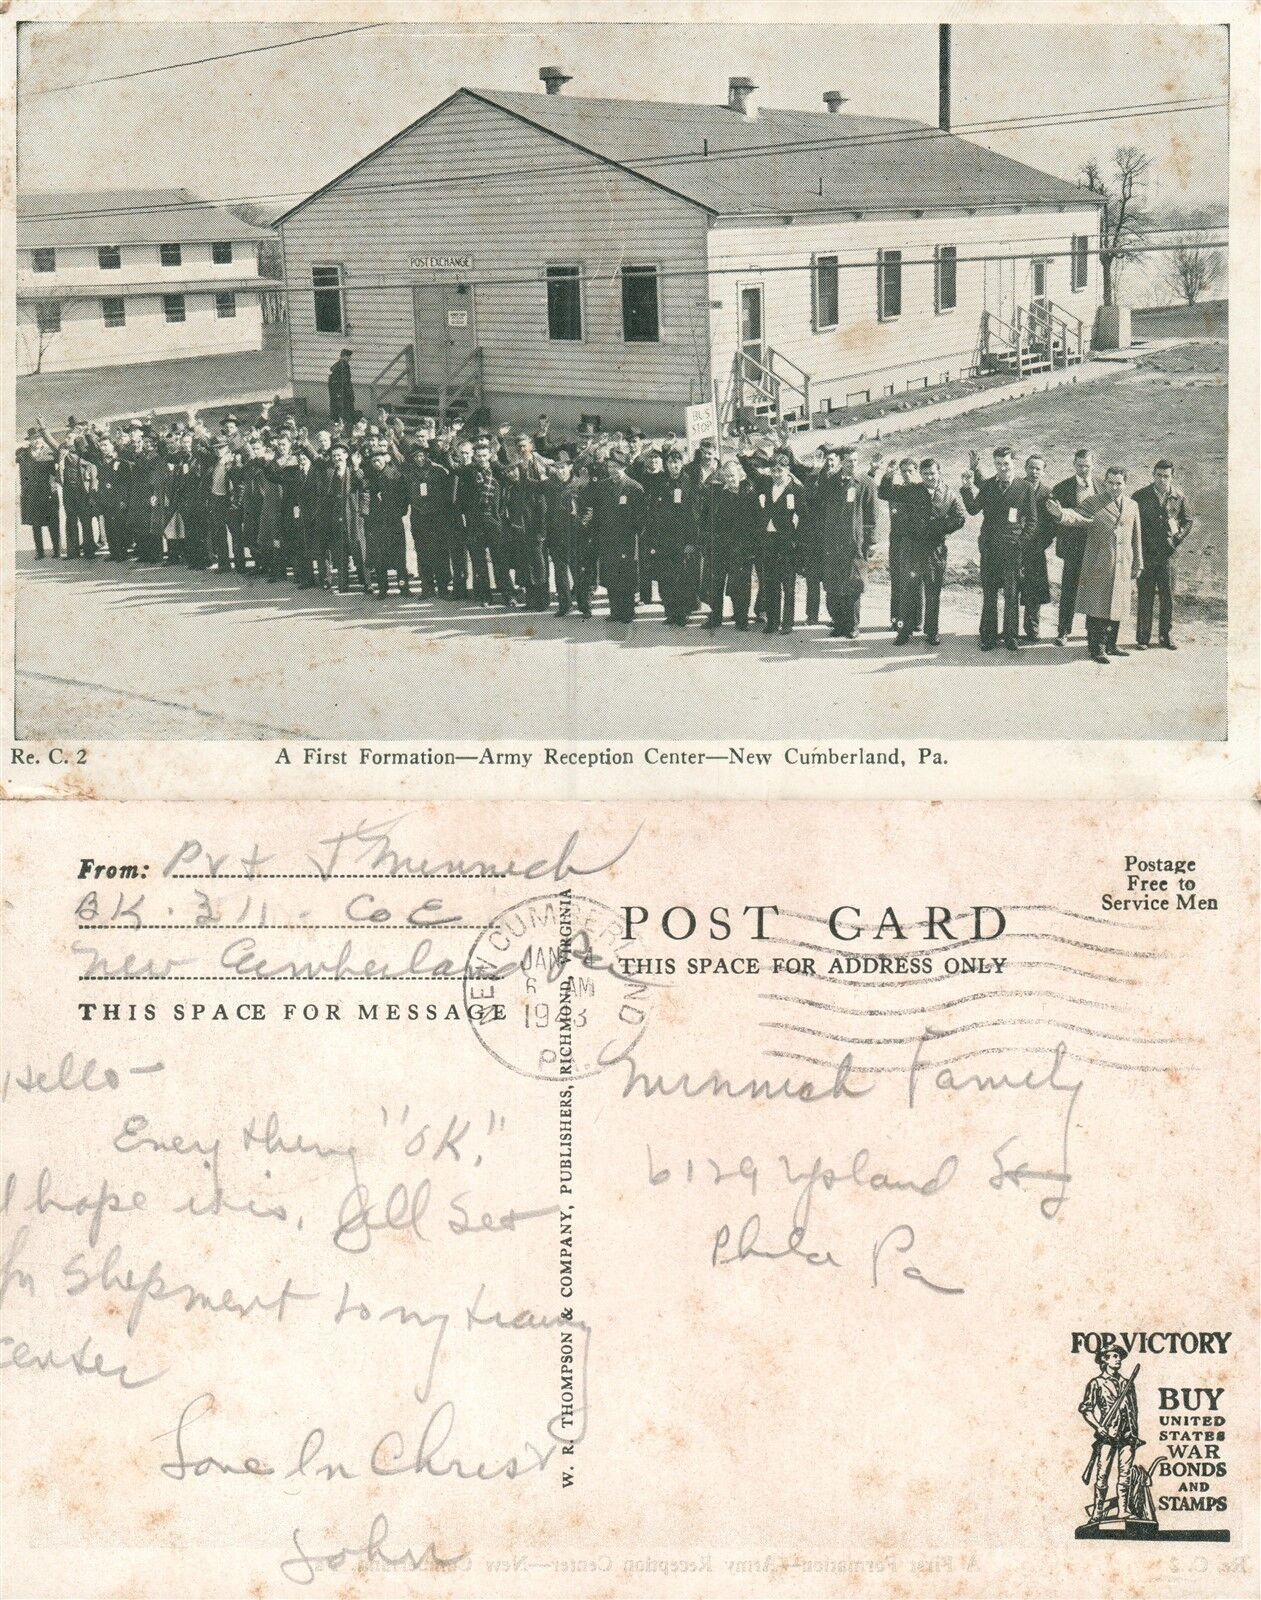 POST EXCHANGE
BUS
STOP
Re. C. 2
A First Formation—Army Reception Center—New Cumberland, Pa.
From: Pvt J Minnich
BK. 311 - Co E
New Cumberland Pa
THIS SPACE FOR MESSAGE
NEW CUMBERLAND
JAN 4
6 AM
1943
PA.
W. R. THOMPSON & COMPANY, PUBLISHERS, RICHMOND, VIRGINIA
Postage
Free to
Service Men
POST CARD
THIS SPACE FOR ADDRESS ONLY
Hello -
Every thing "OK."
I hope it is. All Set
for Shipment to my training
center
Love In Christ
John
Minnich Family
6129 Upland
Phila Pa
FOR VICTORY
BUY
UNITED
STATES
WAR
BONDS
AND
STAMPS
A First Formation—Army Reception Center—New Cumberland, Pa.
Re. C. 2